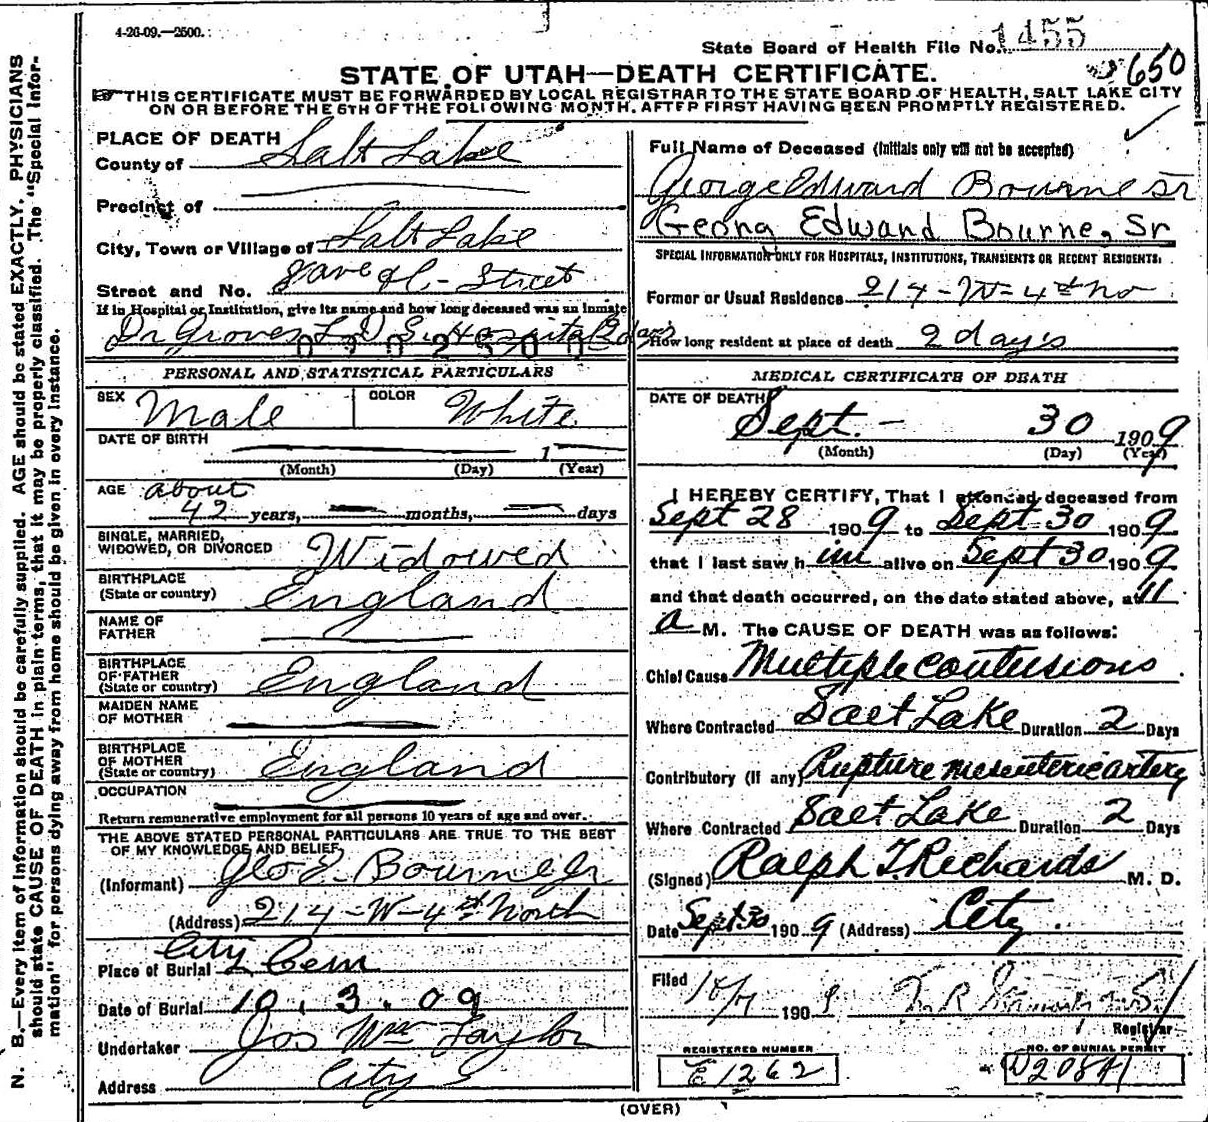 4-26-09.—2500.
State Board of Health File No. 1455
650
STATE OF UTAH—DEATH CERTIFICATE.
THIS CERTIFICATE MUST BE FORWARDED BY LOCAL REGISTRAR TO THE STATE BOARD OF HEALTH, SALT LAKE CITY
ON OR BEFORE THE 5TH OF THE FOLLOWING MONTH, AFTER FIRST HAVING BEEN PROMPTLY REGISTERED.
N. B.—Every item of information should be carefully supplied. AGE should be stated EXACTLY. PHYSICIANS
should state CAUSE OF DEATH in plain terms, that it may be properly classified. The "Special Infor-
mation" for persons dying away from home should be given in every instance.
PLACE OF DEATH
County of Salt Lake
Precinct of
City, Town or Village of Salt Lake
Street and No. Street
If in Hospital or Institution, give its name and how long deceased was an inmate
Dr Groves L D S Hospital 2 days
PERSONAL AND STATISTICAL PARTICULARS
SEX Male COLOR White
DATE OF BIRTH 1
(Month) (Day) (Year)
AGE about
42 years, months, days
SINGLE, MARRIED,
WIDOWED, OR DIVORCED Widowed
BIRTHPLACE
(State or country) England
NAME OF
FATHER
BIRTHPLACE
OF FATHER
(State or country) England
MAIDEN NAME
OF MOTHER
BIRTHPLACE
OF MOTHER
(State or country) England
OCCUPATION
Return remunerative employment for all persons 10 years of age and over.
THE ABOVE STATED PERSONAL PARTICULARS ARE TRUE TO THE BEST
OF MY KNOWLEDGE AND BELIEF
(Informant) Geo E. Bourne Jr
(Address) 214-W-4th North
Place of Burial City Cem
Date of Burial 10.3.09
Undertaker Jos Wm Taylor
Address City
Full Name of Deceased (Initials only will not be accepted)
George Edward Bourne Sr
Georg Edward Bourne, Sr
SPECIAL INFORMATION ONLY FOR HOSPITALS, INSTITUTIONS, TRANSIENTS OR RECENT RESIDENTS:
Former or Usual Residence 214-W-4th No
How long resident at place of death 2 days
MEDICAL CERTIFICATE OF DEATH
DATE OF DEATH
Sept. - 30 1909
(Month) (Day) (Year)
I HEREBY CERTIFY, That I attended deceased from
Sept 28 1909 to Sept 30 1909
that I last saw him alive on Sept 30 1909
and that death occurred, on the date stated above, at 11
a M. The CAUSE OF DEATH was as follows:
Chief Cause Multiple Contusions
Where Contracted Salt Lake Duration 2 Days
Contributory (if any) Rupture mesenteric artery
Where Contracted Salt Lake Duration 2 Days
(Signed) Ralph T. Richards M. D.
Date Sept 30 1909 (Address) City.
Filed 10/7 1909
Registrar
REGISTERED NUMBER
E 1262
NO. OF BURIAL PERMIT
(OVER)